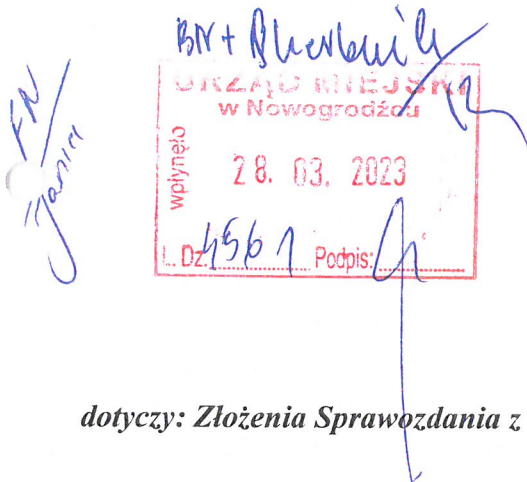 BN+
URZĄD MIEJSKI
w Nowogrodźcu
wpłynęło
28. 03. 2023
L. Dz. 4561 Podpis:
FN
dotyczy: Złożenia Sprawozdania z